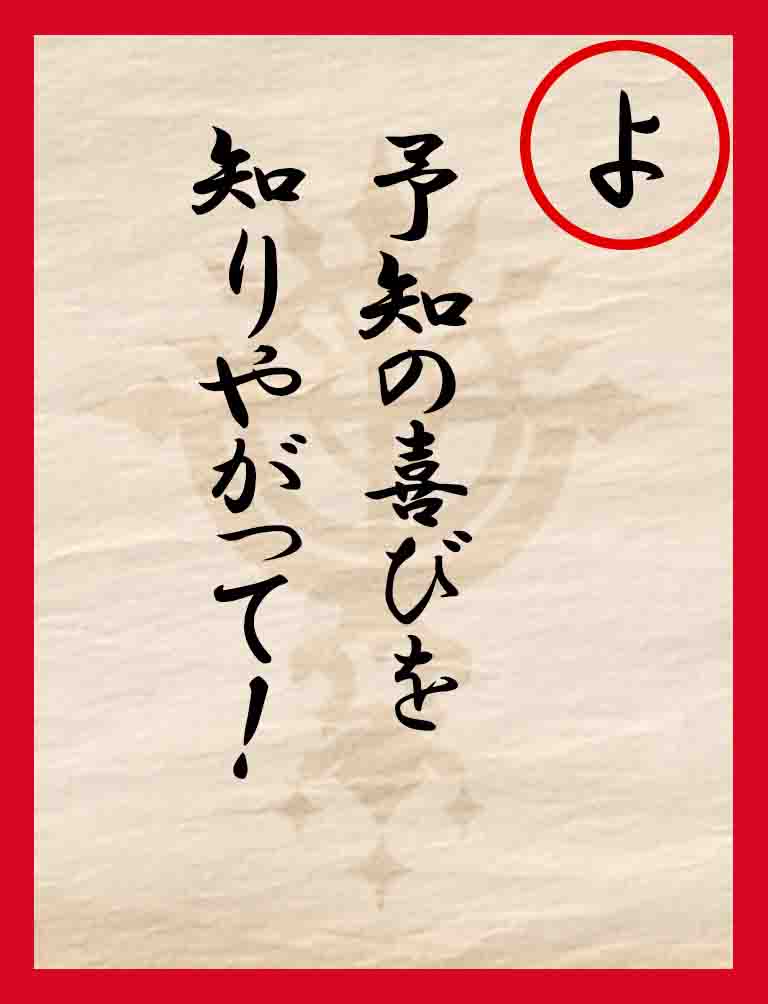 よ
予知の喜びを
知りやがって！